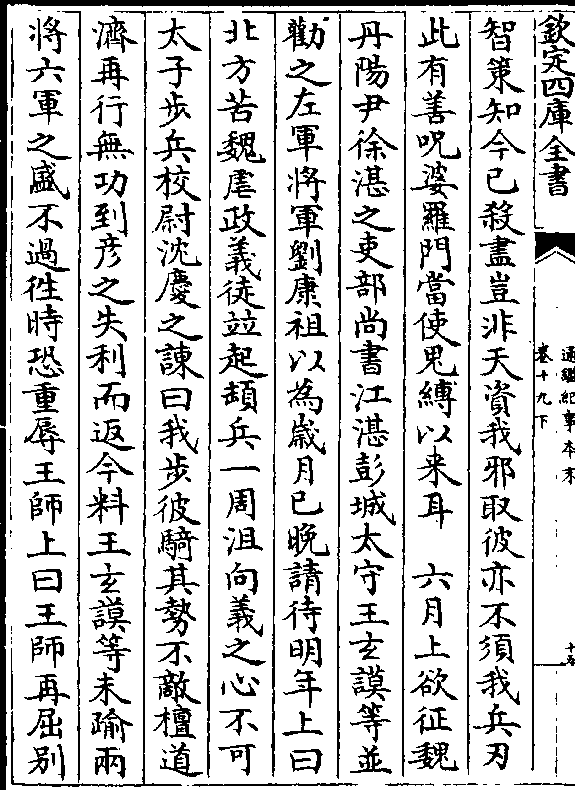 欽定四庫全書
通鑑紀事本末
卷十九下
十五
智策知今已殺盡豈非天資我邪取彼亦不須我兵刃
此有善呪婆羅門當使鬼縛以来耳　六月上欲征魏
丹陽尹徐湛之吏部尚書江湛彭城太守王玄謨等並
勸之左軍將軍劉康祖以為歲月已晚請待明年上曰
北方苦魏虐政義徒並起頓兵一周沮向義之心不可
太子步兵校尉沈慶之諫曰我步彼騎其勢不敵檀道
濟再行無功到彦之失利而返今料王玄謨等未踰兩
將六軍之盛不過徃時恐重辱王師上曰王師再屈别